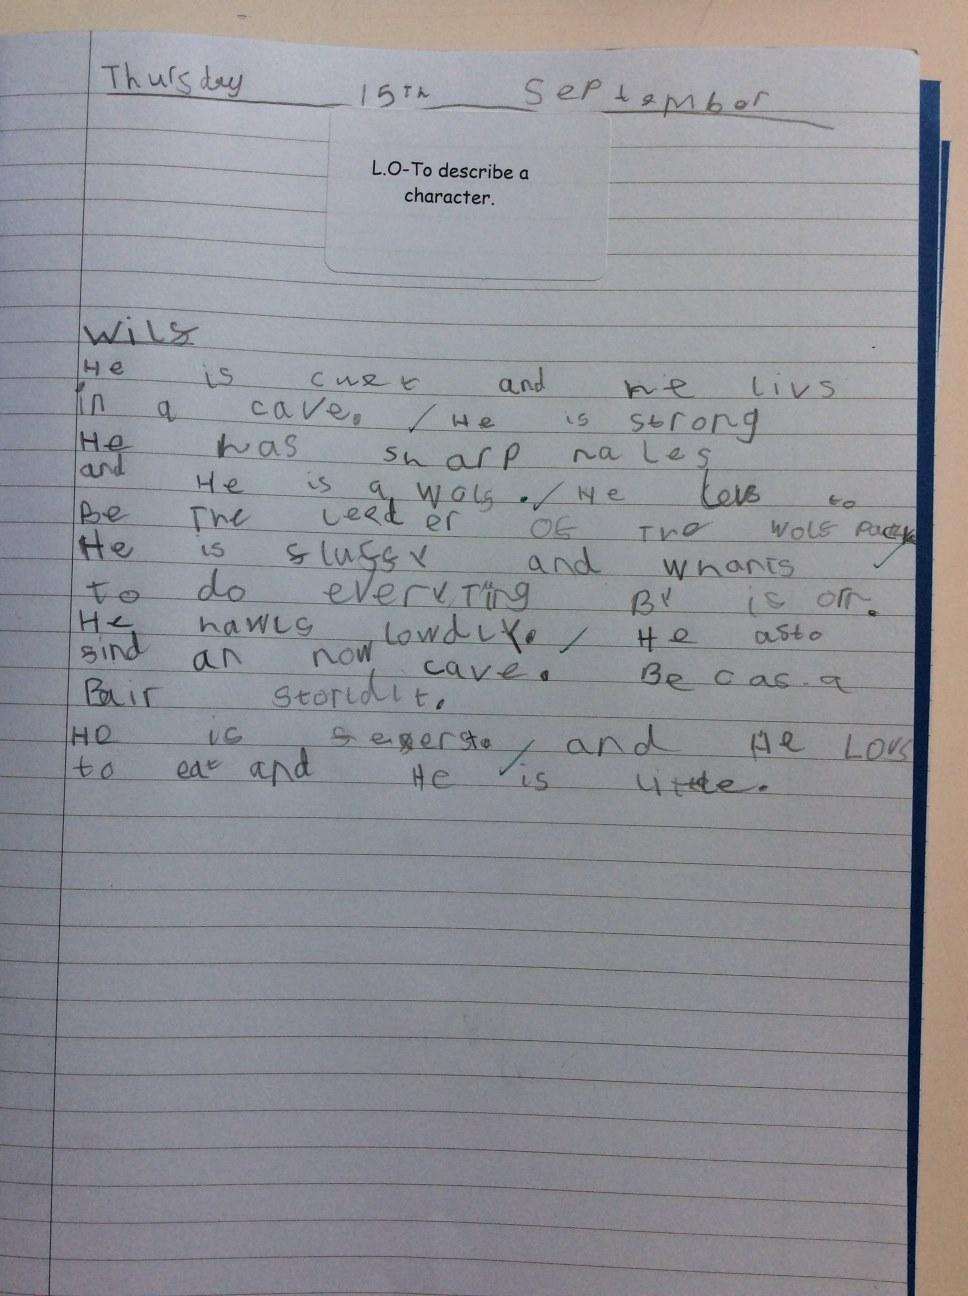 Thursday 15Th September
L.O-To describe a
character.
Wils
He is and he livs
in a cave. He is strong
He has sharp nales
and He is a wols. He to
Be The leeder OF The wols pack
He is sluffy and whants
to do everything By is on.
He hawls lowdly. He asto
sind an now cave. Be cas a
Bair storldit.
HE is and He Lovs
to eat and He is little.